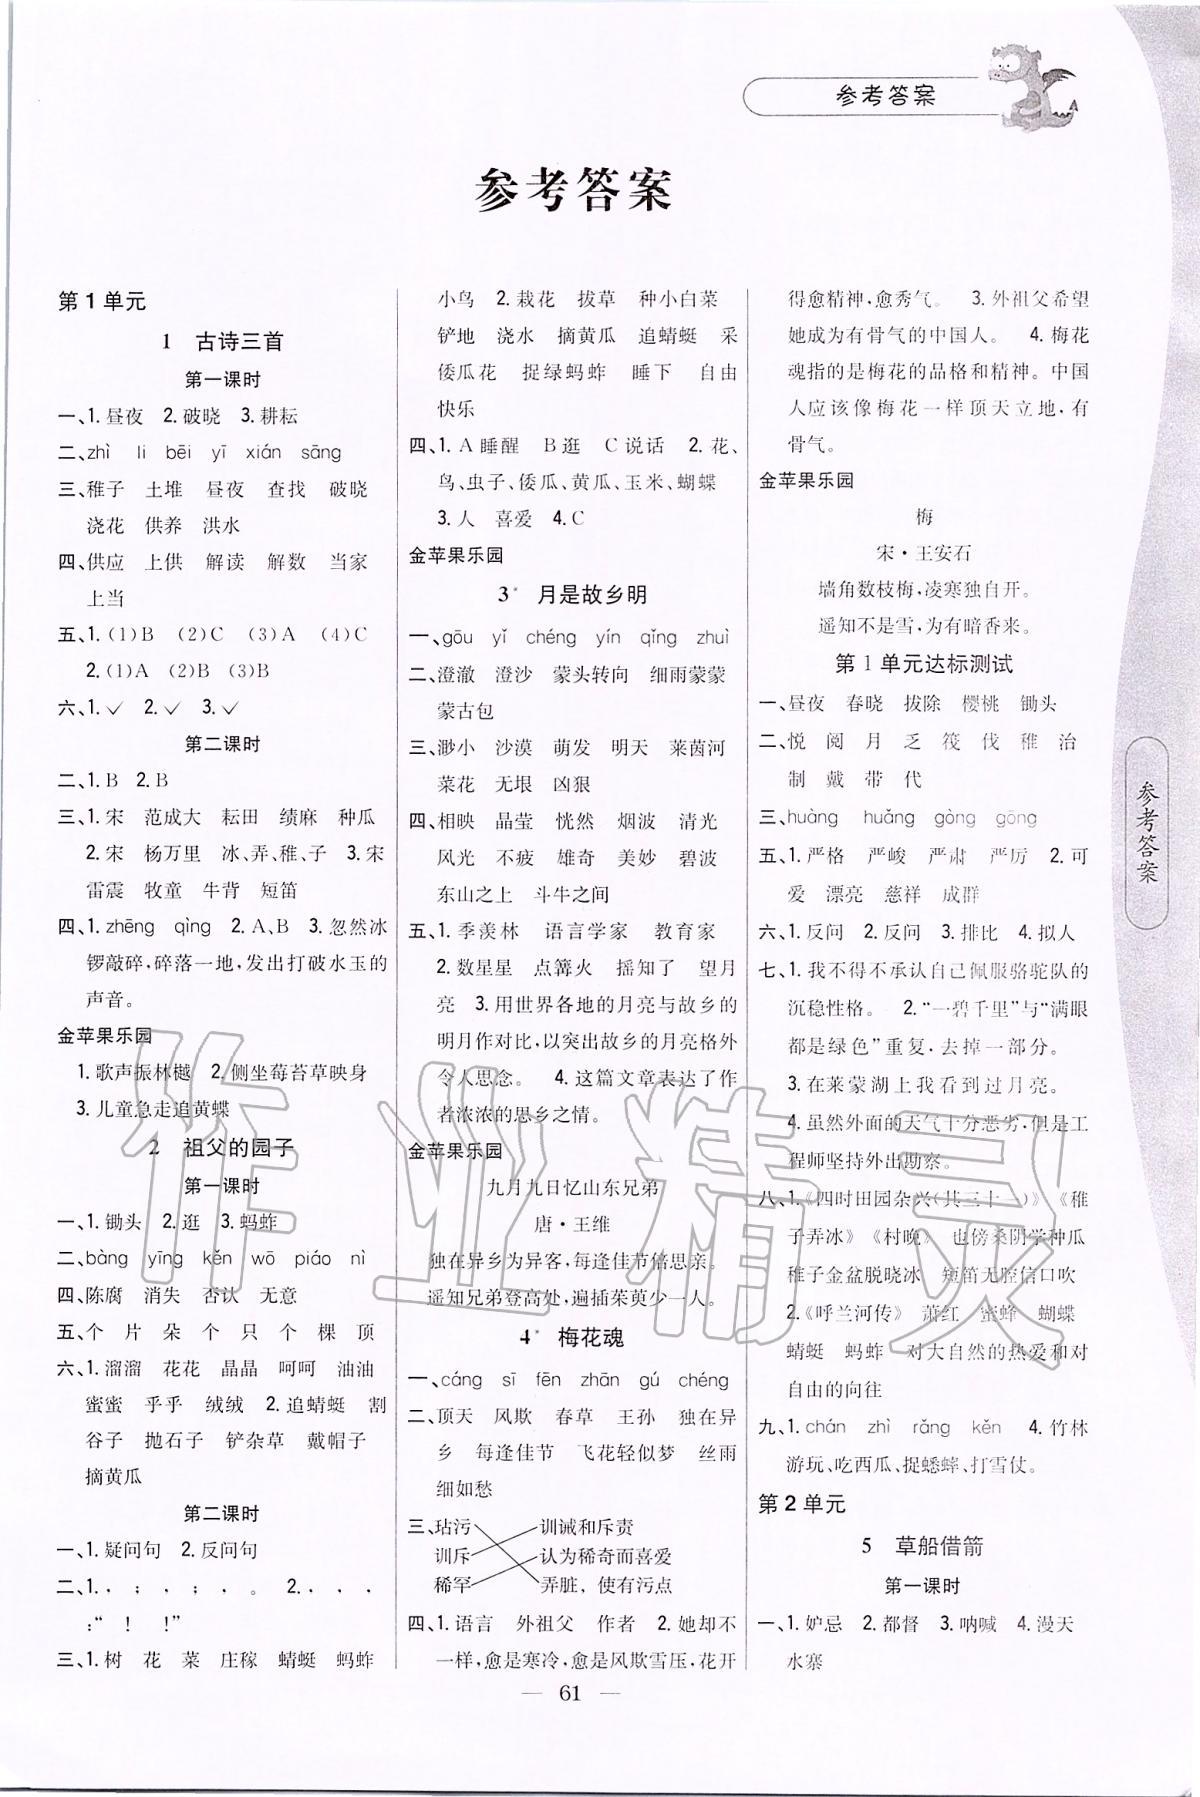 参考答案
参考答案
第1单元
1 古诗三首
第一课时
一、1.昼夜 2.破晓 3.耕耘
二、zhì li bēi yī xián sāng
三、稚子 土堆 昼夜 查找 破晓
浇花 供养 洪水
四、供应 上供 解读 解数 当家
上当
五、1.(1)B (2)C (3)A (4)C
2.(1)A (2)B (3)B
六、1.✓ 2.✓ 3.✓
第二课时
二、1.B 2.B
三、1.宋 范成大 耘田 绩麻 种瓜
2.宋 杨万里 冰、弄、稚、子 3.宋
雷震 牧童 牛背 短笛
四、1.zhēng qìng 2.A、B 3.忽然冰
锣敲碎,碎落一地,发出打破水玉的
声音。
金苹果乐园
1.歌声振林樾 2.侧坐莓苔草映身
3.儿童急走追黄蝶
2 祖父的园子
第一课时
一、1.锄头 2.逛 3.蚂蚱
二、bàng yīng kěn wō piáo nì
四、陈腐 消失 否认 无意
五、个 片 朵 个 只 个 棵 顶
六、1.溜溜 花花 晶晶 呵呵 油油
蜜蜜 乎乎 绒绒 2.追蜻蜓 割
谷子 抛石子 铲杂草 戴帽子
摘黄瓜
第二课时
一、1.疑问句 2.反问句
二、1., ; , ; , 。 2., , ,
:“ ! !”
三、1.树 花 菜 庄稼 蜻蜓 蚂蚱
小鸟 2.栽花 拔草 种小白菜
铲地 浇水 摘黄瓜 追蜻蜓 采
倭瓜花 捉绿蚂蚱 睡下 自由
快乐
四、1.A睡醒 B逛 C说话 2.花、
鸟、虫子、倭瓜、黄瓜、玉米、蝴蝶
3.人 喜爱 4.C
金苹果乐园
3* 月是故乡明
一、gōu yǐ chéng yín qǐng zhuì
二、澄澈 澄沙 蒙头转向 细雨蒙蒙
蒙古包
三、渺小 沙漠 萌发 明天 莱茵河
菜花 无垠 凶狠
四、相映 晶莹 恍然 烟波 清光
风光 不疲 雄奇 美妙 碧波
东山之上 斗牛之间
五、1.季羡林 语言学家 教育家
2.数星星 点篝火 摇知了 望月
亮 3.用世界各地的月亮与故乡的
明月作对比,以突出故乡的月亮格外
令人思念。 4.这篇文章表达了作
者浓浓的思乡之情。
金苹果乐园
九月九日忆山东兄弟
唐·王维
独在异乡为异客,每逢佳节倍思亲。
遥知兄弟登高处,遍插茱萸少一人。
4* 梅花魂
一、cáng sī fēn zhān gú chéng
二、顶天 风欺 春草 王孙 独在异
乡 每逢佳节 飞花轻似梦 丝雨
细如愁
三、玷污 训诫和斥责
训斥 认为稀奇而喜爱
稀罕 弄脏,使有污点
四、1.语言 外祖父 作者 2.她却不
一样,愈是寒冷,愈是风欺雪压,花开
得愈精神,愈秀气。 3.外祖父希望
她成为有骨气的中国人。 4.梅花
魂指的是梅花的品格和精神。中国
人应该像梅花一样顶天立地,有
骨气。
金苹果乐园
梅
宋·王安石
墙角数枝梅,凌寒独自开。
遥知不是雪,为有暗香来。
第1单元达标测试
一、昼夜 春晓 拔除 樱桃 锄头
二、悦 阅 月 乏 筏 伐 稚 治
制 戴 带 代
三、huàng huǎng gòng gōng
五、1.严格 严峻 严肃 严厉 2.可
爱 漂亮 慈祥 成群
六、1.反问 2.反问 3.排比 4.拟人
七、1.我不得不承认自己佩服骆驼队的
沉稳性格。 2.“一碧千里”与“满眼
都是绿色”重复,去掉一部分。
3.在莱蒙湖上我看到过月亮。
4.虽然外面的天气十分恶劣,但是工
程师坚持外出勘察。
八、1.《四时田园杂兴(其三十一)》《稚
子弄冰》《村晚》 也傍桑阴学种瓜
稚子金盆脱晓冰 短笛无腔信口吹
2.《呼兰河传》 萧红 蜜蜂 蝴蝶
蜻蜓 蚂蚱 对大自然的热爱和对
自由的向往
九、1.chán zhì rǎng kěn 4.竹林
游玩、吃西瓜、捉蟋蟀、打雪仗。
第2单元
5 草船借箭
第一课时
一、1.妒忌 2.都督 3.呐喊 4.漫天
水寨
参考答案
— 61 —
作业精灵